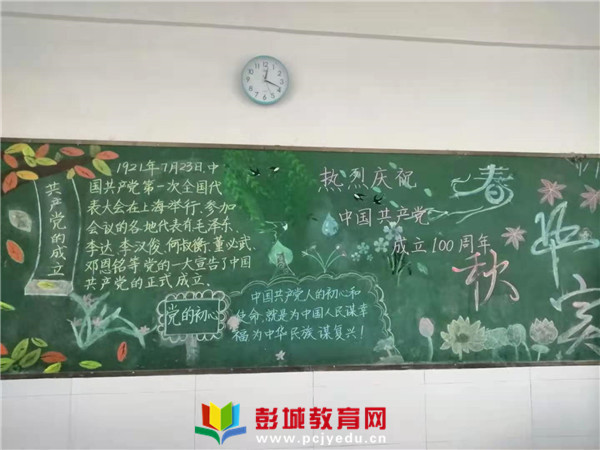 共产党的成立
1921年7月23日,中
国共产党第一次全国代
表大会在上海举行,参加
会议的各地代表有毛泽东、
李达、李汉俊、何叔衡、董必武、
邓恩铭等党的一大宣告了中国
共产党的正式成立.
党的初心
中国共产党人的初心和
使命,就是为中国人民谋幸
福,为中华民族谋复兴!
热烈庆祝
中国共产党
成立100周年
春
秋
彭城教育网
www.pcjyedu.cn